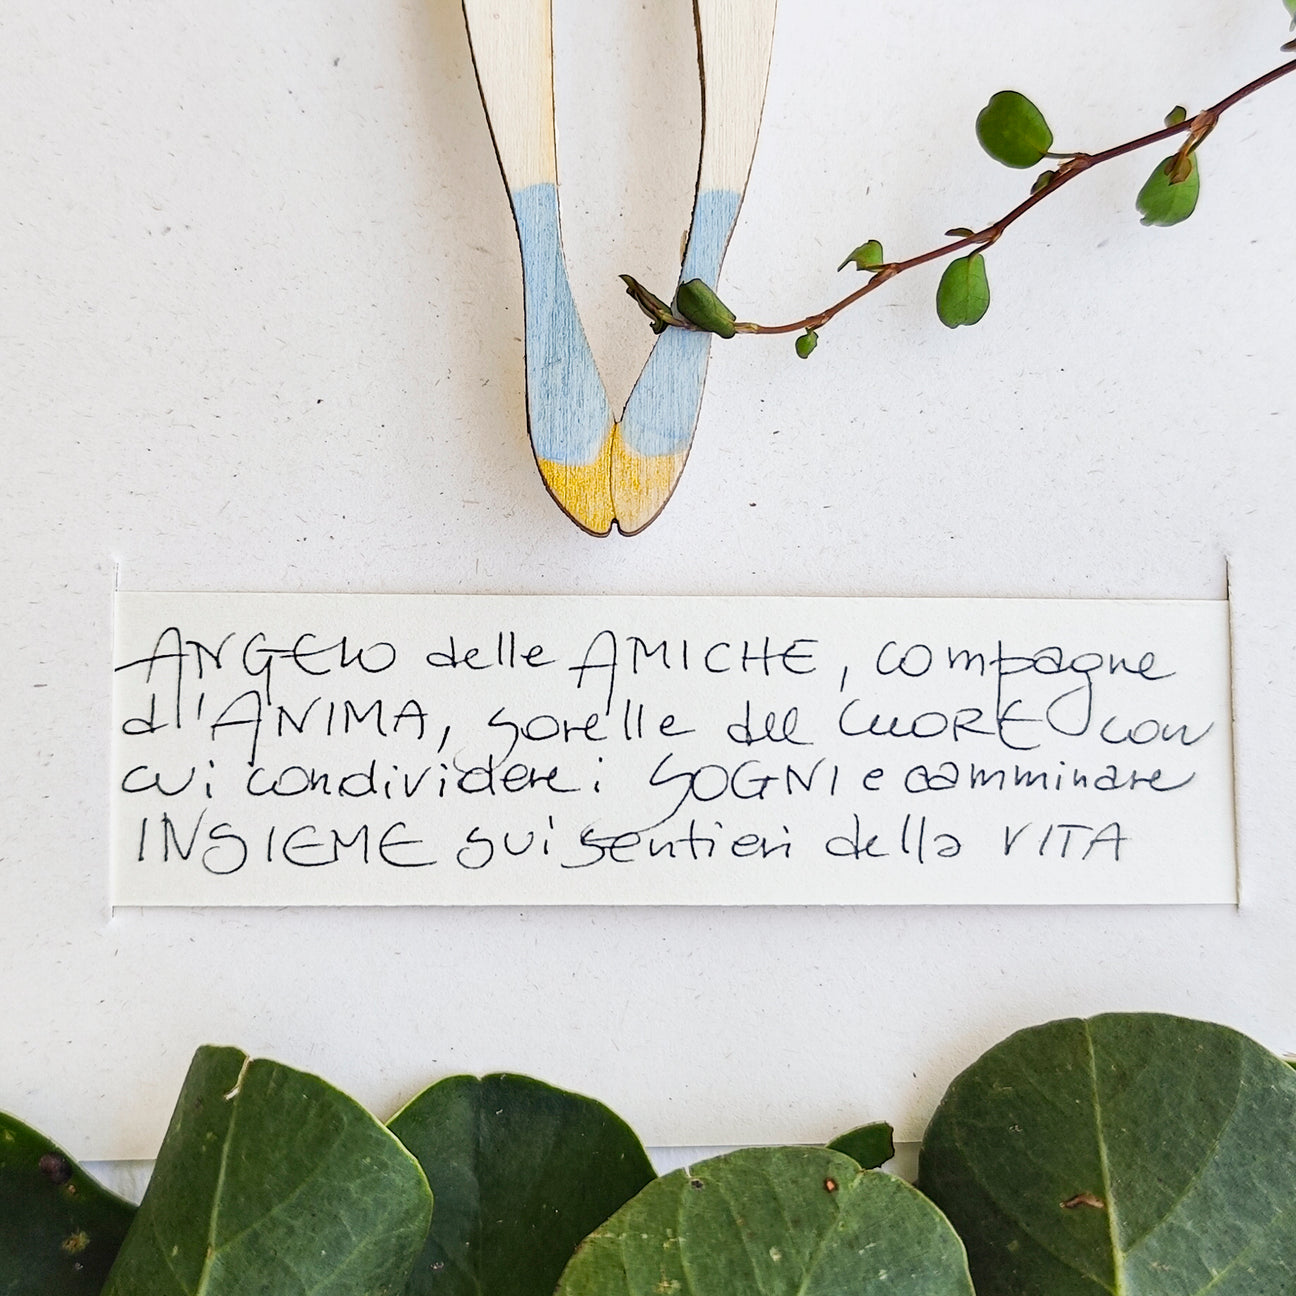 ANGELO delle AMICHE, compagne
d'ANIMA, sorelle del CUORE con
cui condividere i SOGNI e camminare
INSIEME sui sentieri della VITA